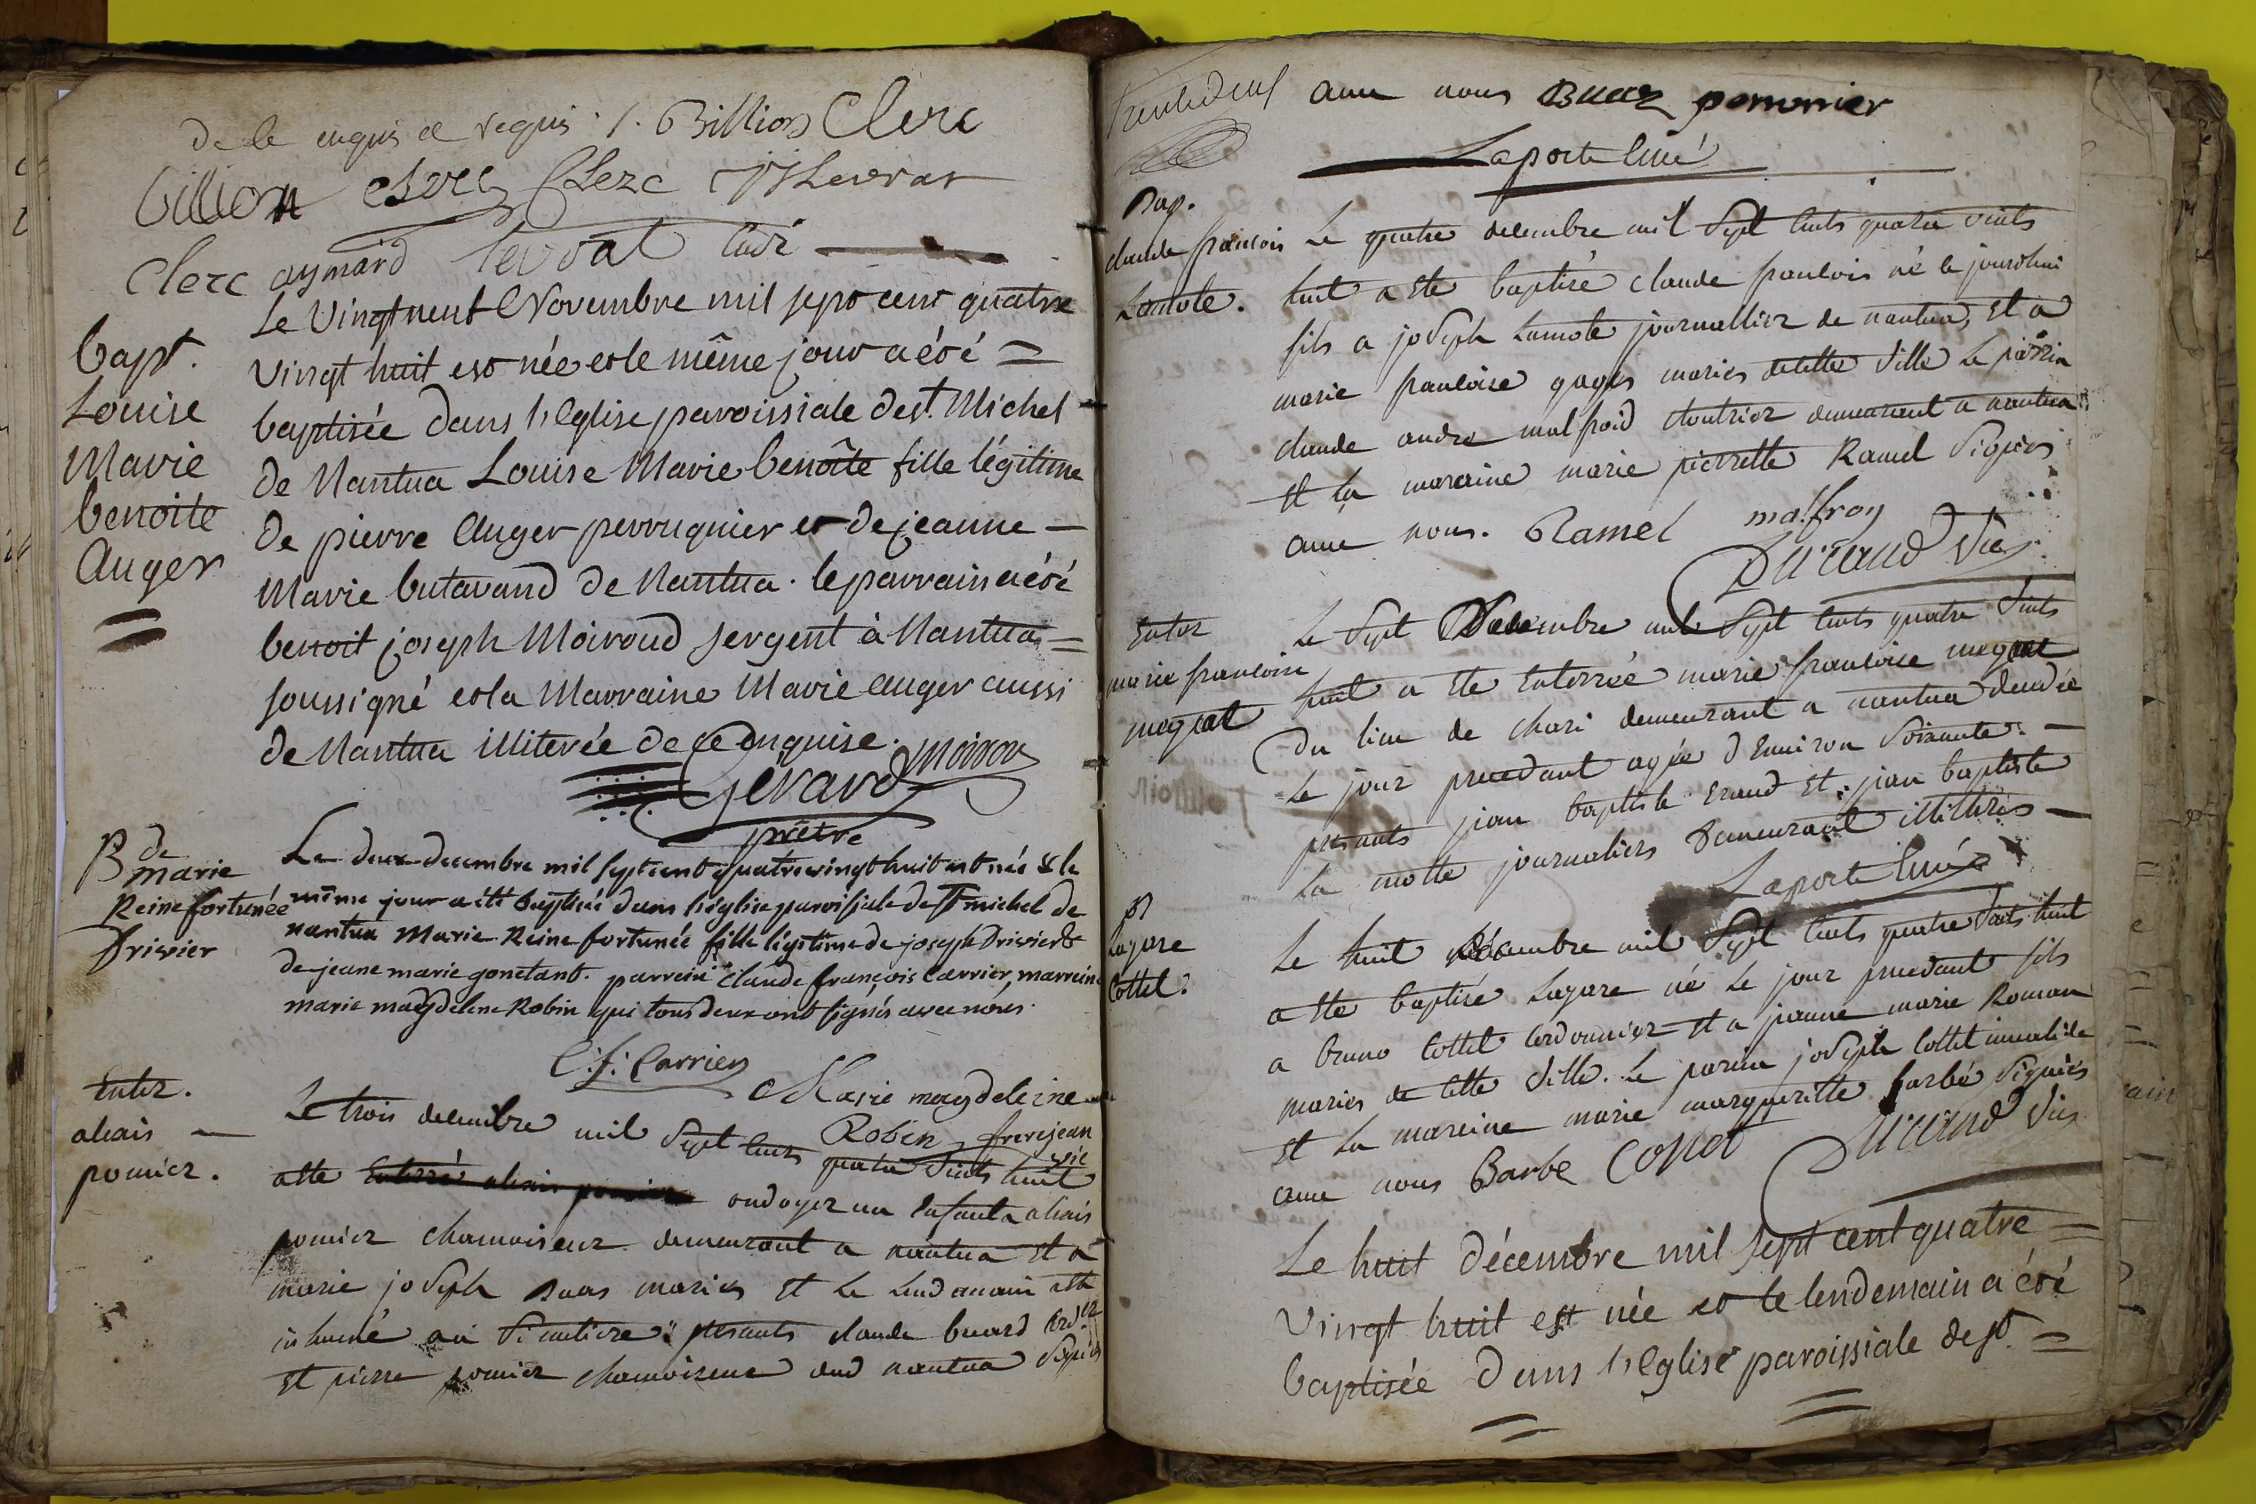 de ce enquis et requis . /. Billion Clerc
billion Clerc Clerc Levrat
Clerc aymard levrat curé
Bapt.
Louise
Marie
benoite
Auger
Le Vingt neuf Novembre mil sept cent quatre
vingt huit est née et le même jour a été =
baptisée dans l'Eglise paroissiale de st. Michel
de Nantua Louise Marie benoîte fille légitime
de pierre Auger perruquier et de jeanne —
Marie butavand de Nantua . le parrain a été
benoit joseph Moiroud sergent à Nantua =
soussigné et la Marraine Marie Auger aussi
de Nantua illiterée de ce enquise .
Gérard Moiroud
prêtre
B de
marie
Reine fortunée
Drivier
Le deux decembre mil sept cent quatre vingt huit est née & le
même jour a été baptisée dans l'église paroissiale de St michel de
nantua Marie Reine fortunée fille légitime de joseph Drivier &
de jeane marie gonetant . parrein claude françois Carrier, marreine
marie magdelene Robin qui tous deux ont signés avec nous .
C. f. Carrier
Marie magdeleine
Robin frerejean
vic
Enter.
alexis —
pomier .
Le trois decembre mil Sept cents quatre vints huit
a ete Enterré alexis pomier ondoyer un Enfant a alexis
pomier chamoiseur demeurant a nantua Et a
marie joseph Buas mariés Et Le Lendemain ete
inhumé au Simetiere : presents claude buard Cord.er
Et pierre pomier chamoiseur aud nantua Signés
trente deux
avec nous Buaz pommier
Laporte Curé
Bap.
claude francois
Lamote .
Le quatre decembre mil Sept cents quatre vints
huit a ete baptisé claude francois né le jourdhui
fils a joseph Lamote journallier de nantua, Et a
marie francoise gages mariés de cette Ville Le parrin
claude andre malfroid cloutrier demeurant a nantua
Et La maraine marie pierrette Ramel Signés
avec nous . Ramel malfroy
Durand Vic
Enter
marie francoise
meyrat
Le Sept Decembre mil Sept cents quatre Vints
huit a ete Enterrée marie francoise meyrat
du lieu de chari demeurant a nantua decedée
Le jour precedant agée d'Environ Soixante —
presents jean baptiste Eraud Et jean baptiste
La motte journaliers demeurant illiterés —
Laporte Curé
B
Lazare
Cottet .
Le huit decembre mil Sept cents quatre Vints huit
a ete baptisé Lazare né Le jour precedant fils
a bruno Cottet cordonnier Et a jeanne marie Roman
mariés de cette Ville . Le parrin joseph Cottet invalide
Et La mareine marie margueritte barbé Signés
avec nous Barbe Copet Durand Vic
Le huit Décembre mil sept cent quatre =
Vingt huit est née et le lendemain a été
baptisée Dans l'Eglise paroissiale de st. =